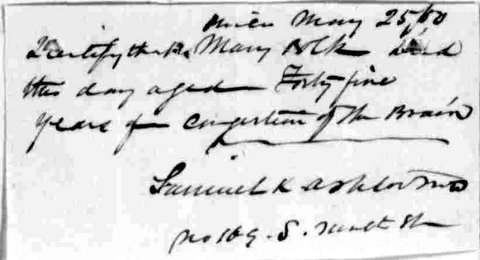 May 25/50
I certify that Mary Polk died
this day aged Forty five
years of Congestion of the Brain
Samuel K Ashton MD
No 169. S. Ninth St